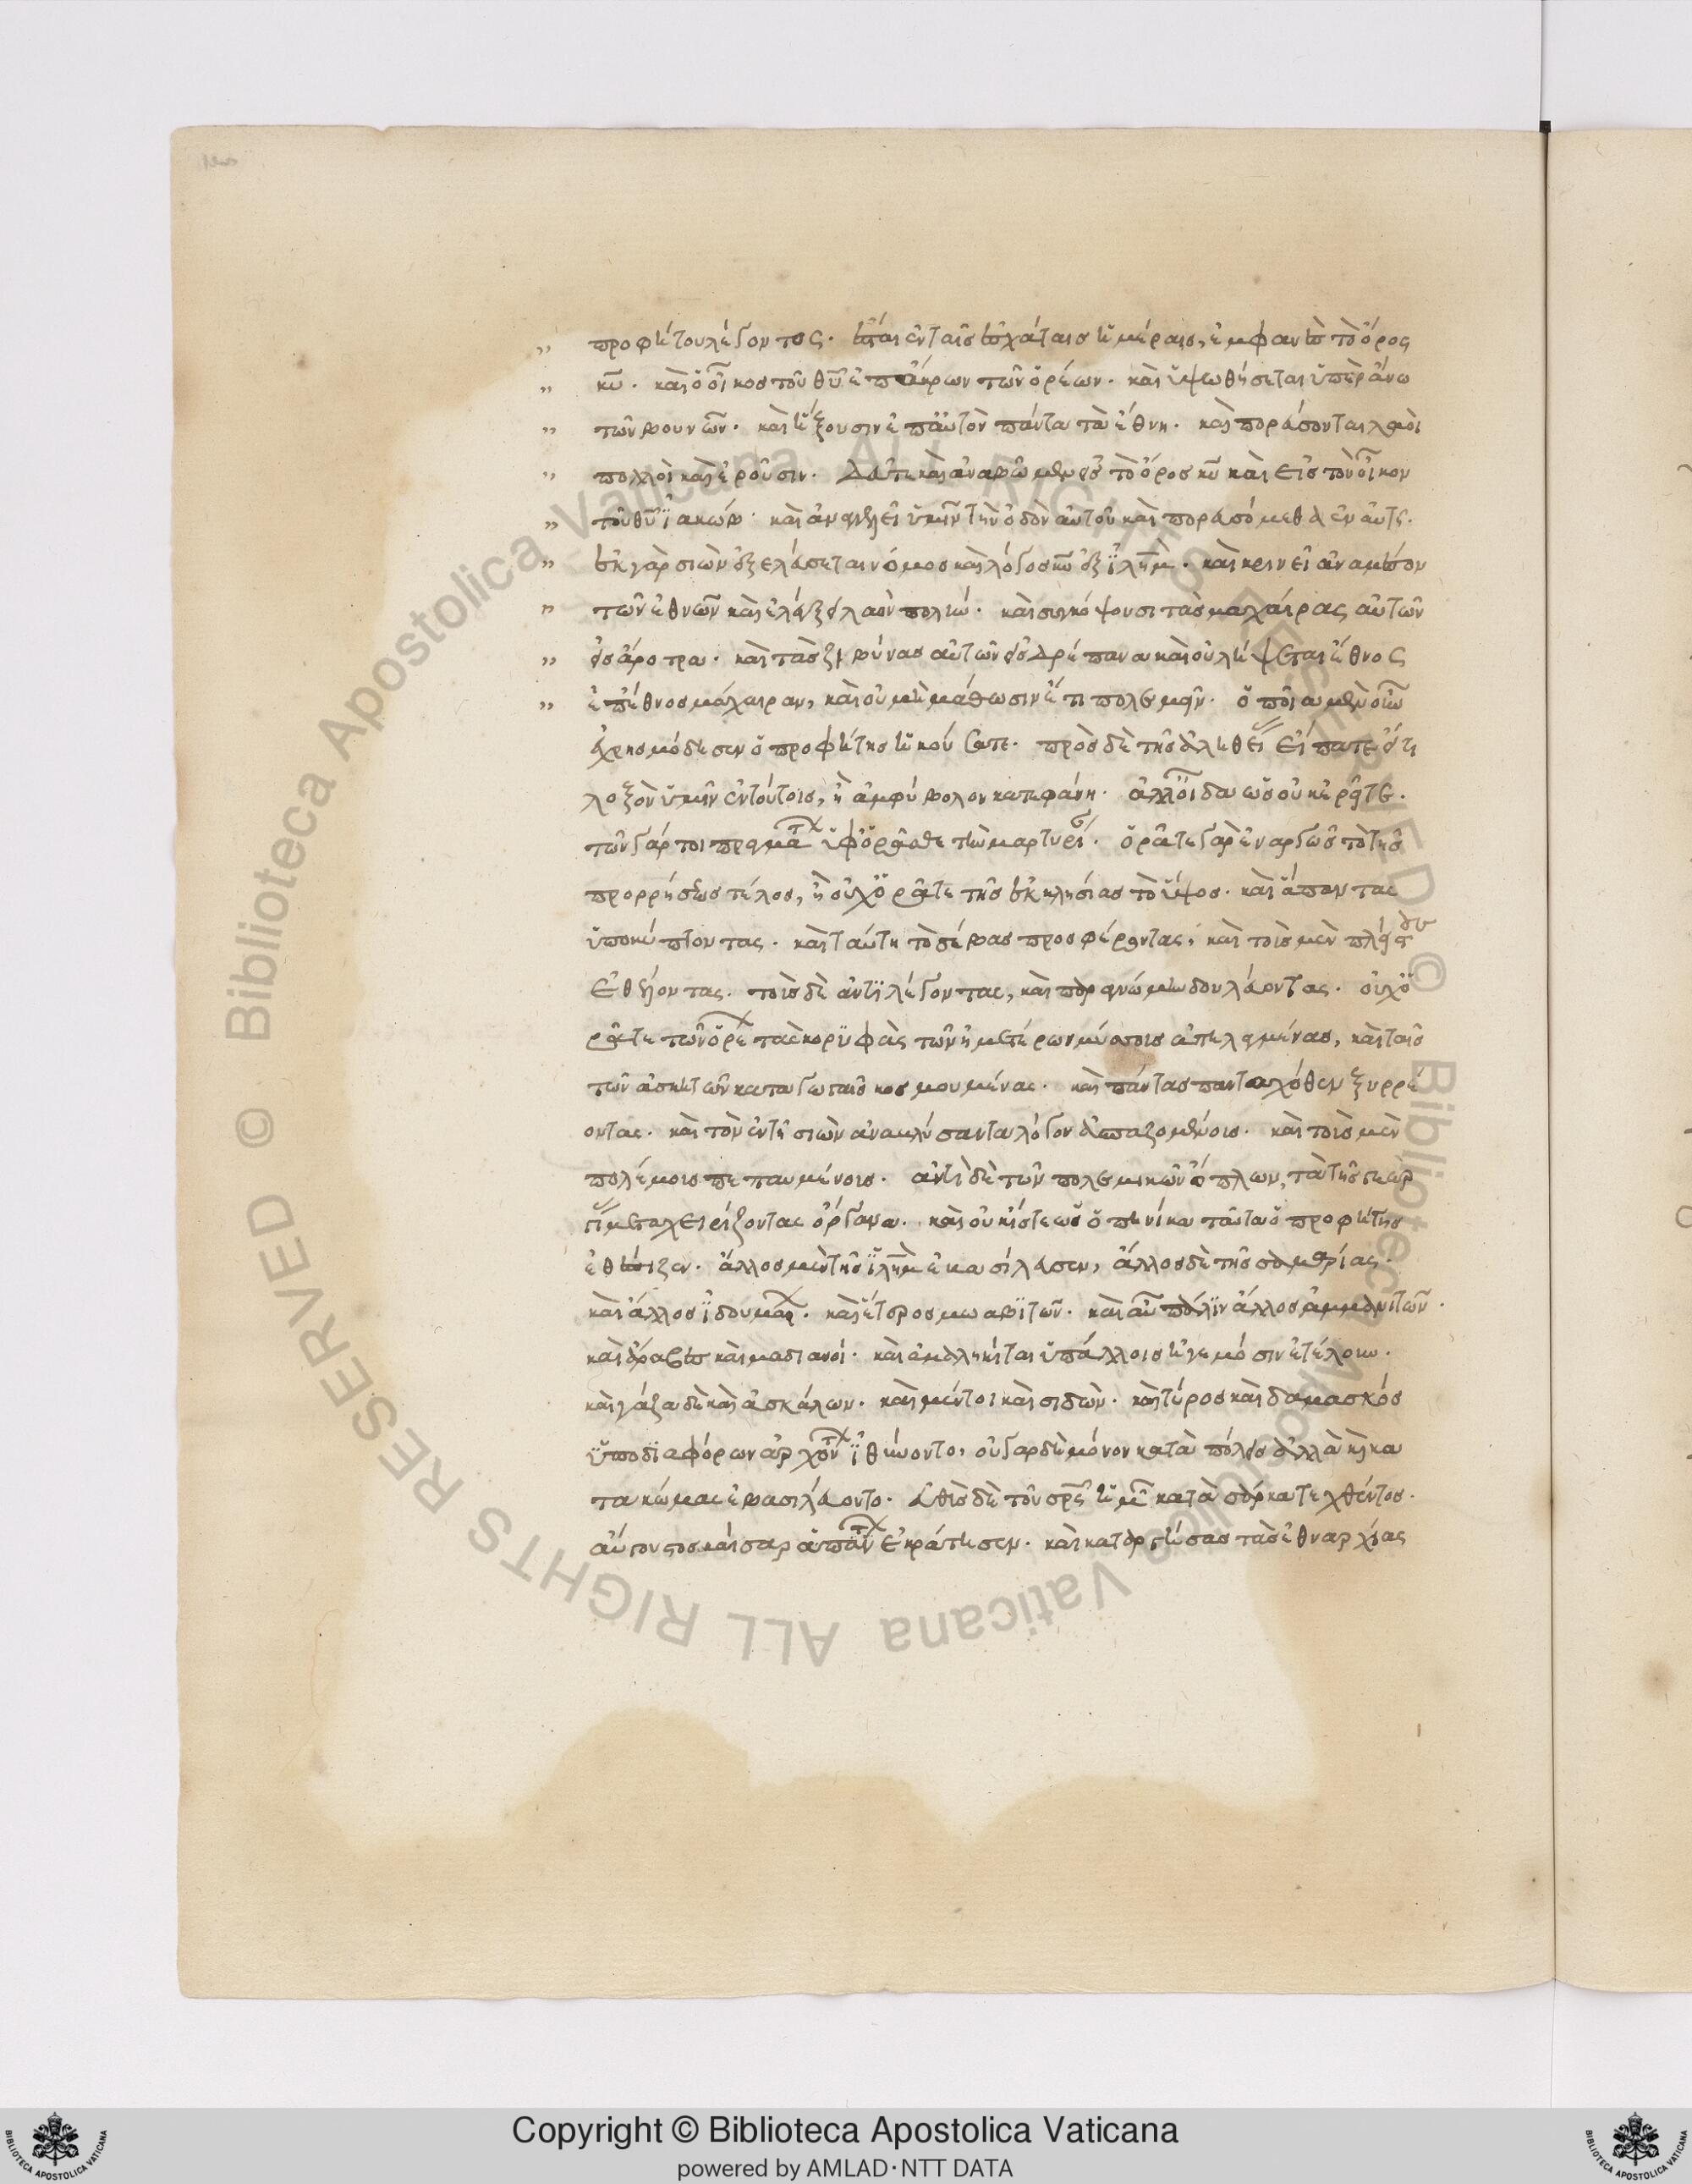 „ προφήτου λέγοντος· ἔσται ἐν ταῖς ἐσχάταις ἡμέραις, ἐμφανὲς τὸ ὄρος
„ κυ̅· καὶ ὁ οἶκος τοῦ θυ̅ ἐπ' ἄκρων τῶν ὀρέων· καὶ ὑψωθήσεται ὑπεράνω
„ τῶν βουνῶν· καὶ ἥξουσιν ἐπ' αὐτὸν πάντα τὰ ἔθνη· καὶ πορεύσονται λαοὶ
„ πολλοὶ καὶ ἐροῦσιν· δεῦτε καὶ ἀναβῶμεν εἰς τὸ ὄρος κυ̅ καὶ εἰς τὸν οἶκον
„ τοῦ θυ̅ ϊακώβ· καὶ ἀναγγελεῖ ὑμῖν τὴν ὁδὸν αὐτοῦ καὶ πορευσόμεθα ἐν αὐτῇ·
„ ἐκ γὰρ σιὼν ἐξελεύσεται νόμος καὶ λόγος κυ̅ ἐξ ϊλη̅μ· καὶ κρινεῖ ἀναμέσον
„ τῶν ἐθνῶν καὶ ἐλέγξει λαὸν πολύν· καὶ συγκόψουσι τὰς μαχαίρας αὐτῶν
„ εἰς ἄροτρα· καὶ τὰς ζιβύνας αὐτῶν εἰς δρέπανα καὶ οὐ λήψεται ἔθνος
„ ἐπ' ἔθνος μάχαιραν, καὶ οὐ μὴ μάθωσιν ἔτι πολεμεῖν· ὁποῖα μὲν οὖν
ἐχρησμώδησεν ὁ προφήτης ἠκούσατε· πρὸς δὲ τῆς ἀληθείας εἴπατε ὅτι
λοξὸν ὑμῖν ἐν τούτοις, ἢ ἀμφίβολον κατεφάνη· ἀλλ' οἶδα ὡς οὐκ ἐρεῖτε·
τῶν γάρ τοι πραγμάτων ὑφορᾶσθε τὴν μαρτυρίαν· ὁρᾶτε γὰρ ἐναργῶς τὸ τῆς
προρρήσεως τέλος, ἢ οὐχ ὁρᾶτε τῆς ἐκκλησίας τὸ ὕψος· καὶ ἅπαντας
ὑποκύπτοντας· καὶ ταύτῃ τὸ σέβας προσφέροντας, καὶ τοὺς μὲν
ἐθέλοντας· τοὺς δὲ ἀντιλέγοντας, καὶ παρὰ γνώμην δουλεύοντας· οὐχ ὁ
ρᾶτε τῶν ὀρέων τὰς κορυφὰς τῶν ἡμετέρων μύσους ἀπηλλαγμένας, καὶ ταῖς
τῶν ἀσκητῶν καταγωγαῖς κοσμουμένας· καὶ πάντας πανταχόθεν ξυρρέ
οντας· καὶ τὸν ἐν τῇ σιὼν ἀναμλύσαντα λόγον ἀσπαζομένους· καὶ τοὺς μὲν
πολέμους πεπαυμένους· ἀντὶ δὲ τῶν πολεμικῶν ὅπλων, τὰ τῆς γεωρ
γίας μεταχειρίζοντας ὄργανα· καὶ οὐκ ἴστε ὡς ὁπηνίκα ταῦτα ὁ προφήτης
ἐθέσπιζεν· ἄλλος μὲν τῆς ϊλη̅μ ἐβασίλευσεν, ἄλλος δὲ τῆς σαμαρίας·
καὶ ἄλλος ϊδουμαίων· καὶ ἕτερος μωαβιτῶν· καὶ αὖ πάλιν ἄλλος ἀμμανιτῶν·
καὶ ἄραβες καὶ μαδιανοί· καὶ ἀμαληκῖται ὑπ' ἄλλοις ἡγεμόσιν ἐτέλουν·
καὶ γάζα δὲ καὶ ἀσκάλων· καὶ μέντοι καὶ σιδών· καὶ τύρος καὶ δαμασκός
ὑπὸ διαφόρων ἀρχόντων ϊθύνοντο, οὐ γὰρ δὴ μόνον κατὰ πόλεις ἀλλὰ καὶ κα
τὰ κώμας ἐβασιλεύοντο· εὐθὺς δὲ τοῦ σρ̅ς ἡμῶν κατὰ σάρκα τεχθέντος·
αὔγουστος καῖσαρ ἁπάντων ἐκράτησεν· καὶ καταργήσας τὰς ἐθναρχίας
© Biblioteca Apostolica Vaticana ALL RIGHTS RESERVED
Copyright © Biblioteca Apostolica Vaticana
powered by AMLAD·NTT DATA